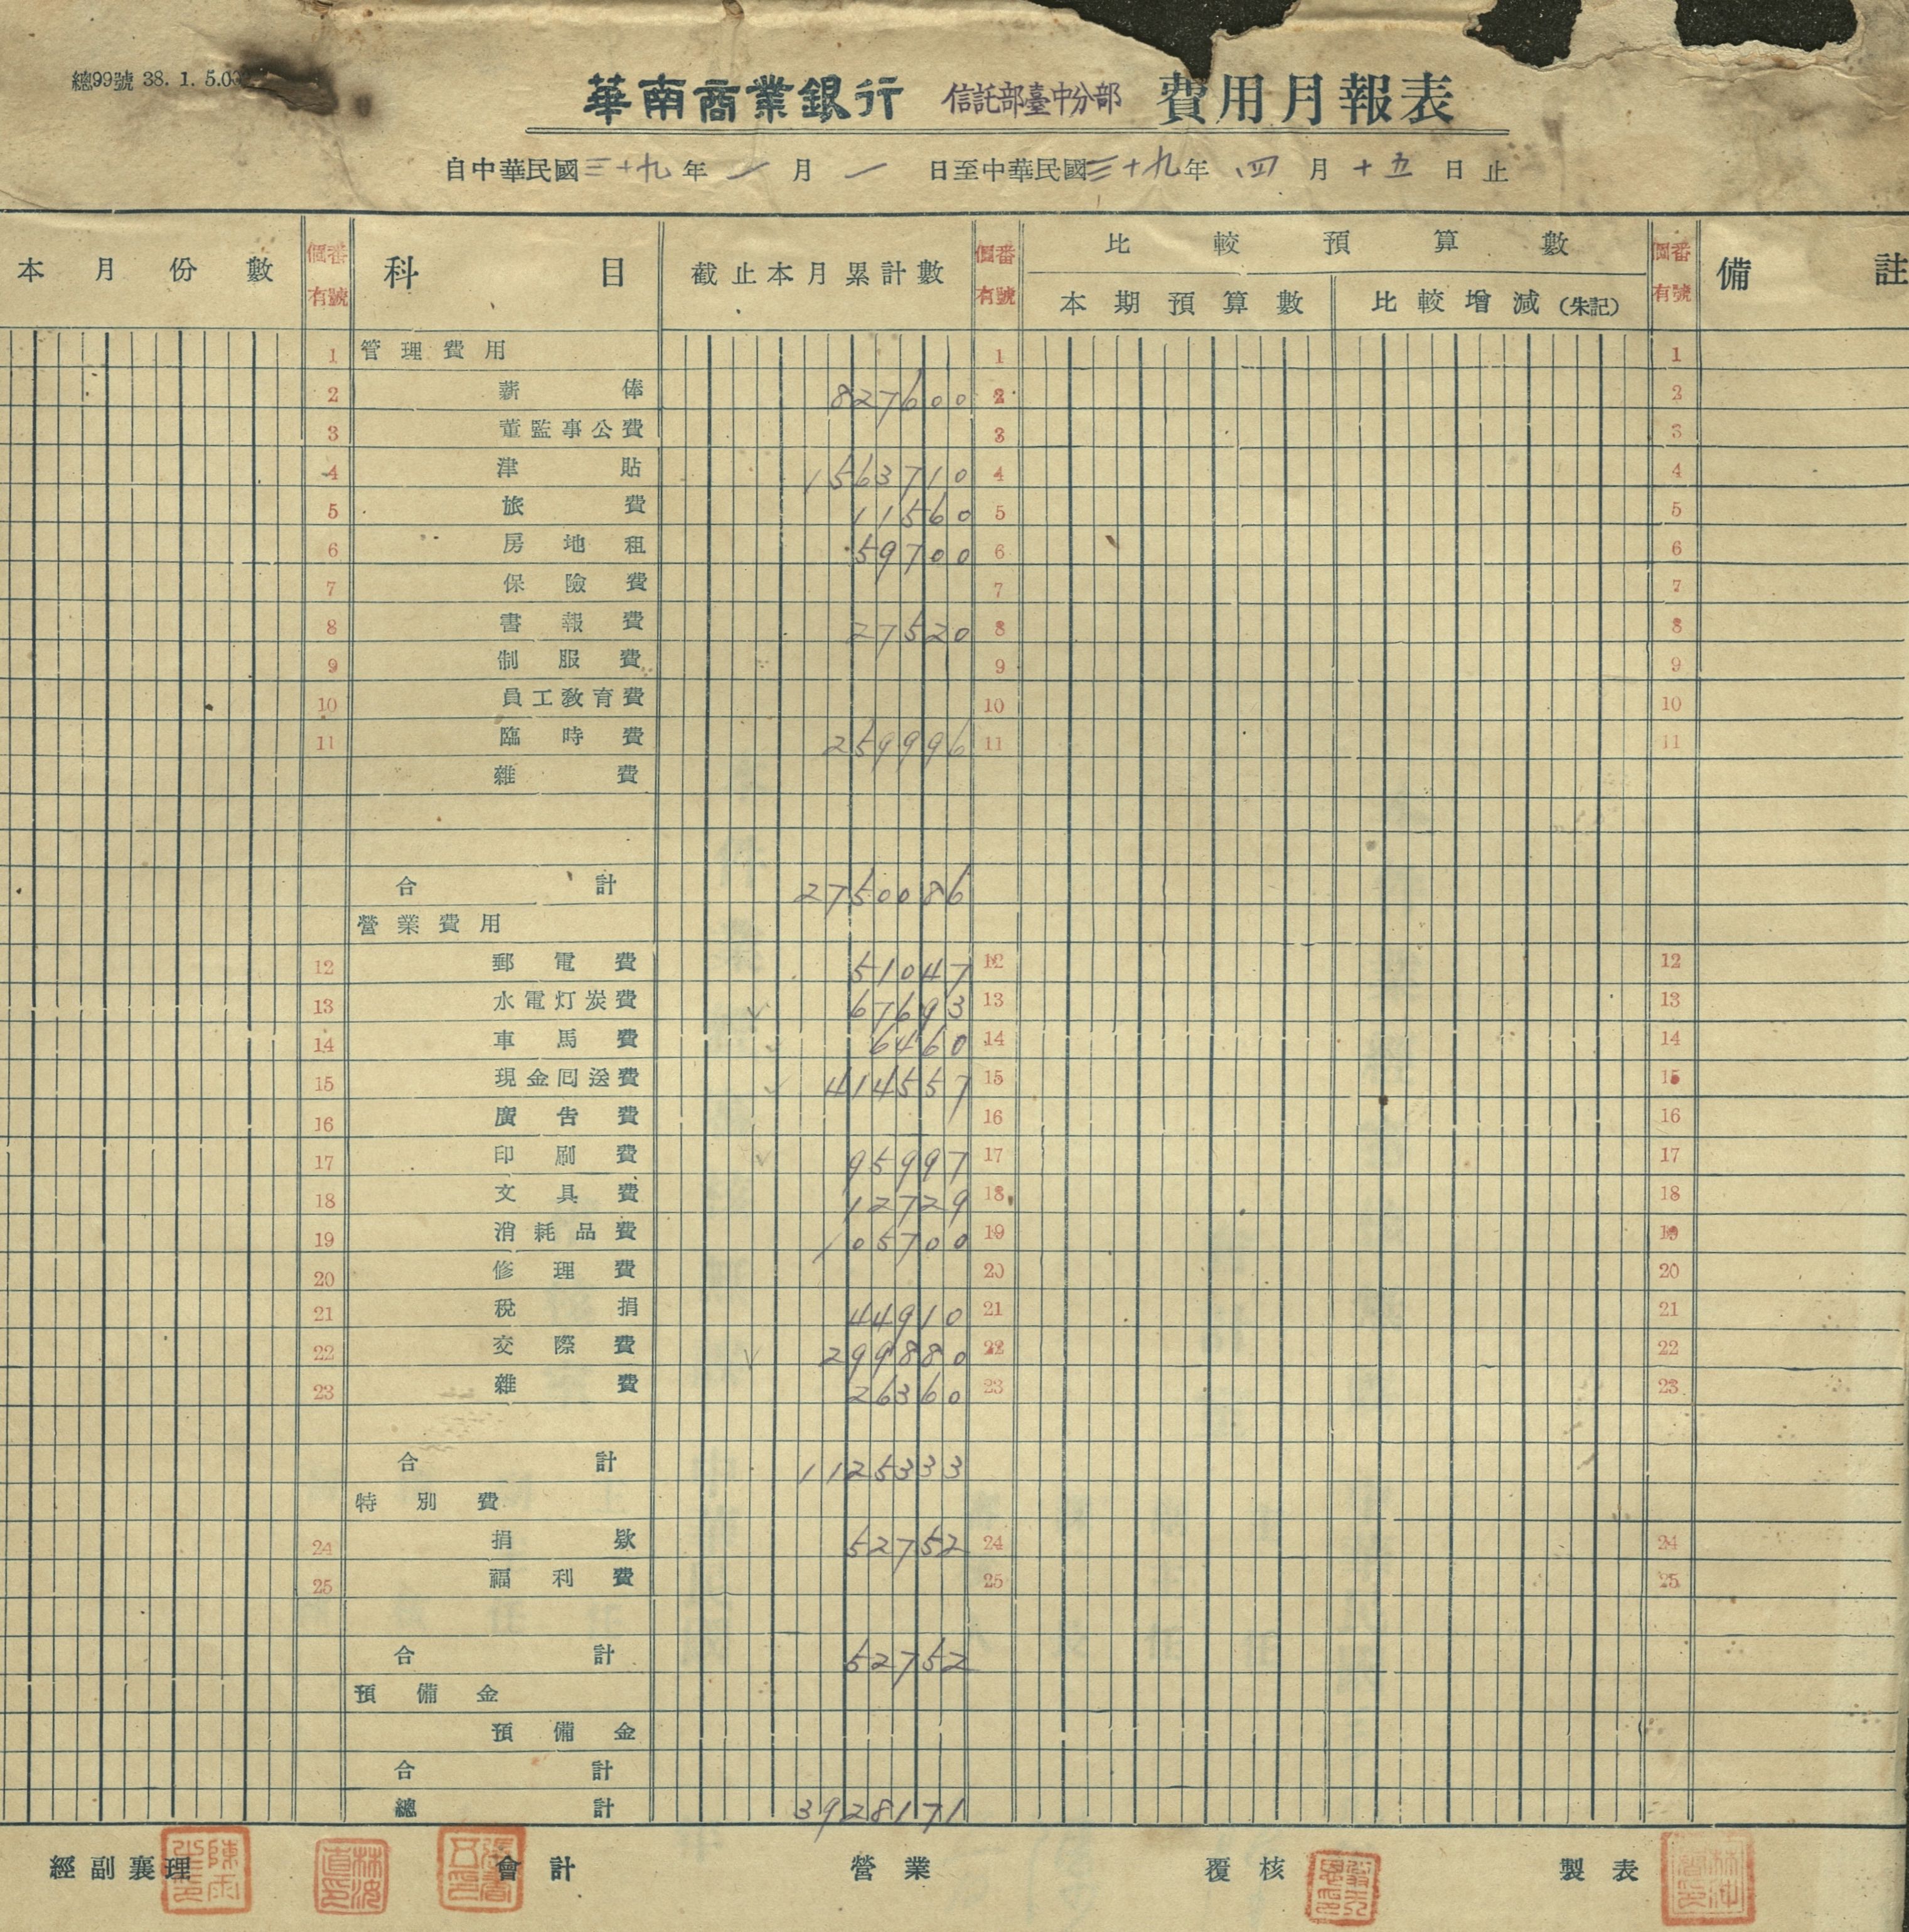 總99號 38. 1. 5.0
華南商業銀行 信託部臺中分部 費用月報表
自中華民國三十九年一月一日至中華民國三十九年四月十五日止
本月份數 個有番號 科目 截止本月累計數 個有番號 比較預算數 個有番號 備註
本期預算數 比較增減(朱記)
1 管理費用 1 1
2 薪俸 827600 2 2
3 董監事公費 3 3
4 津貼 1563710 4 4
5 旅費 11560 5 5
6 房地租 59700 6 6
7 保險費 7 7
8 書報費 27520 8 8
9 制服費 9 9
10 員工教育費 10 10
11 臨時費 259996 11 11
雜費
合計 2750086
營業費用
12 郵電費 51047 12 12
13 水電灯炭費 ✓ 67693 13 13
14 車馬費 ✓ 6460 14 14
15 現金囘送費 ✓ 414557 15 15
16 廣告費 16 16
17 印刷費 ✓ 95997 17 17
18 文具費 12729 18 18
19 消耗品費 105700 19 19
20 修理費 20 20
21 稅捐 44910 21 21
22 交際費 ✓ 299880 22 22
23 雜費 26360 23 23
合計 1125333
特別費
24 捐欵 52752 24 24
25 福利費 25 25
合計 52752
預備金
預備金
合計
總計 3928171
經副襄理 會計 營業 覆核 製表